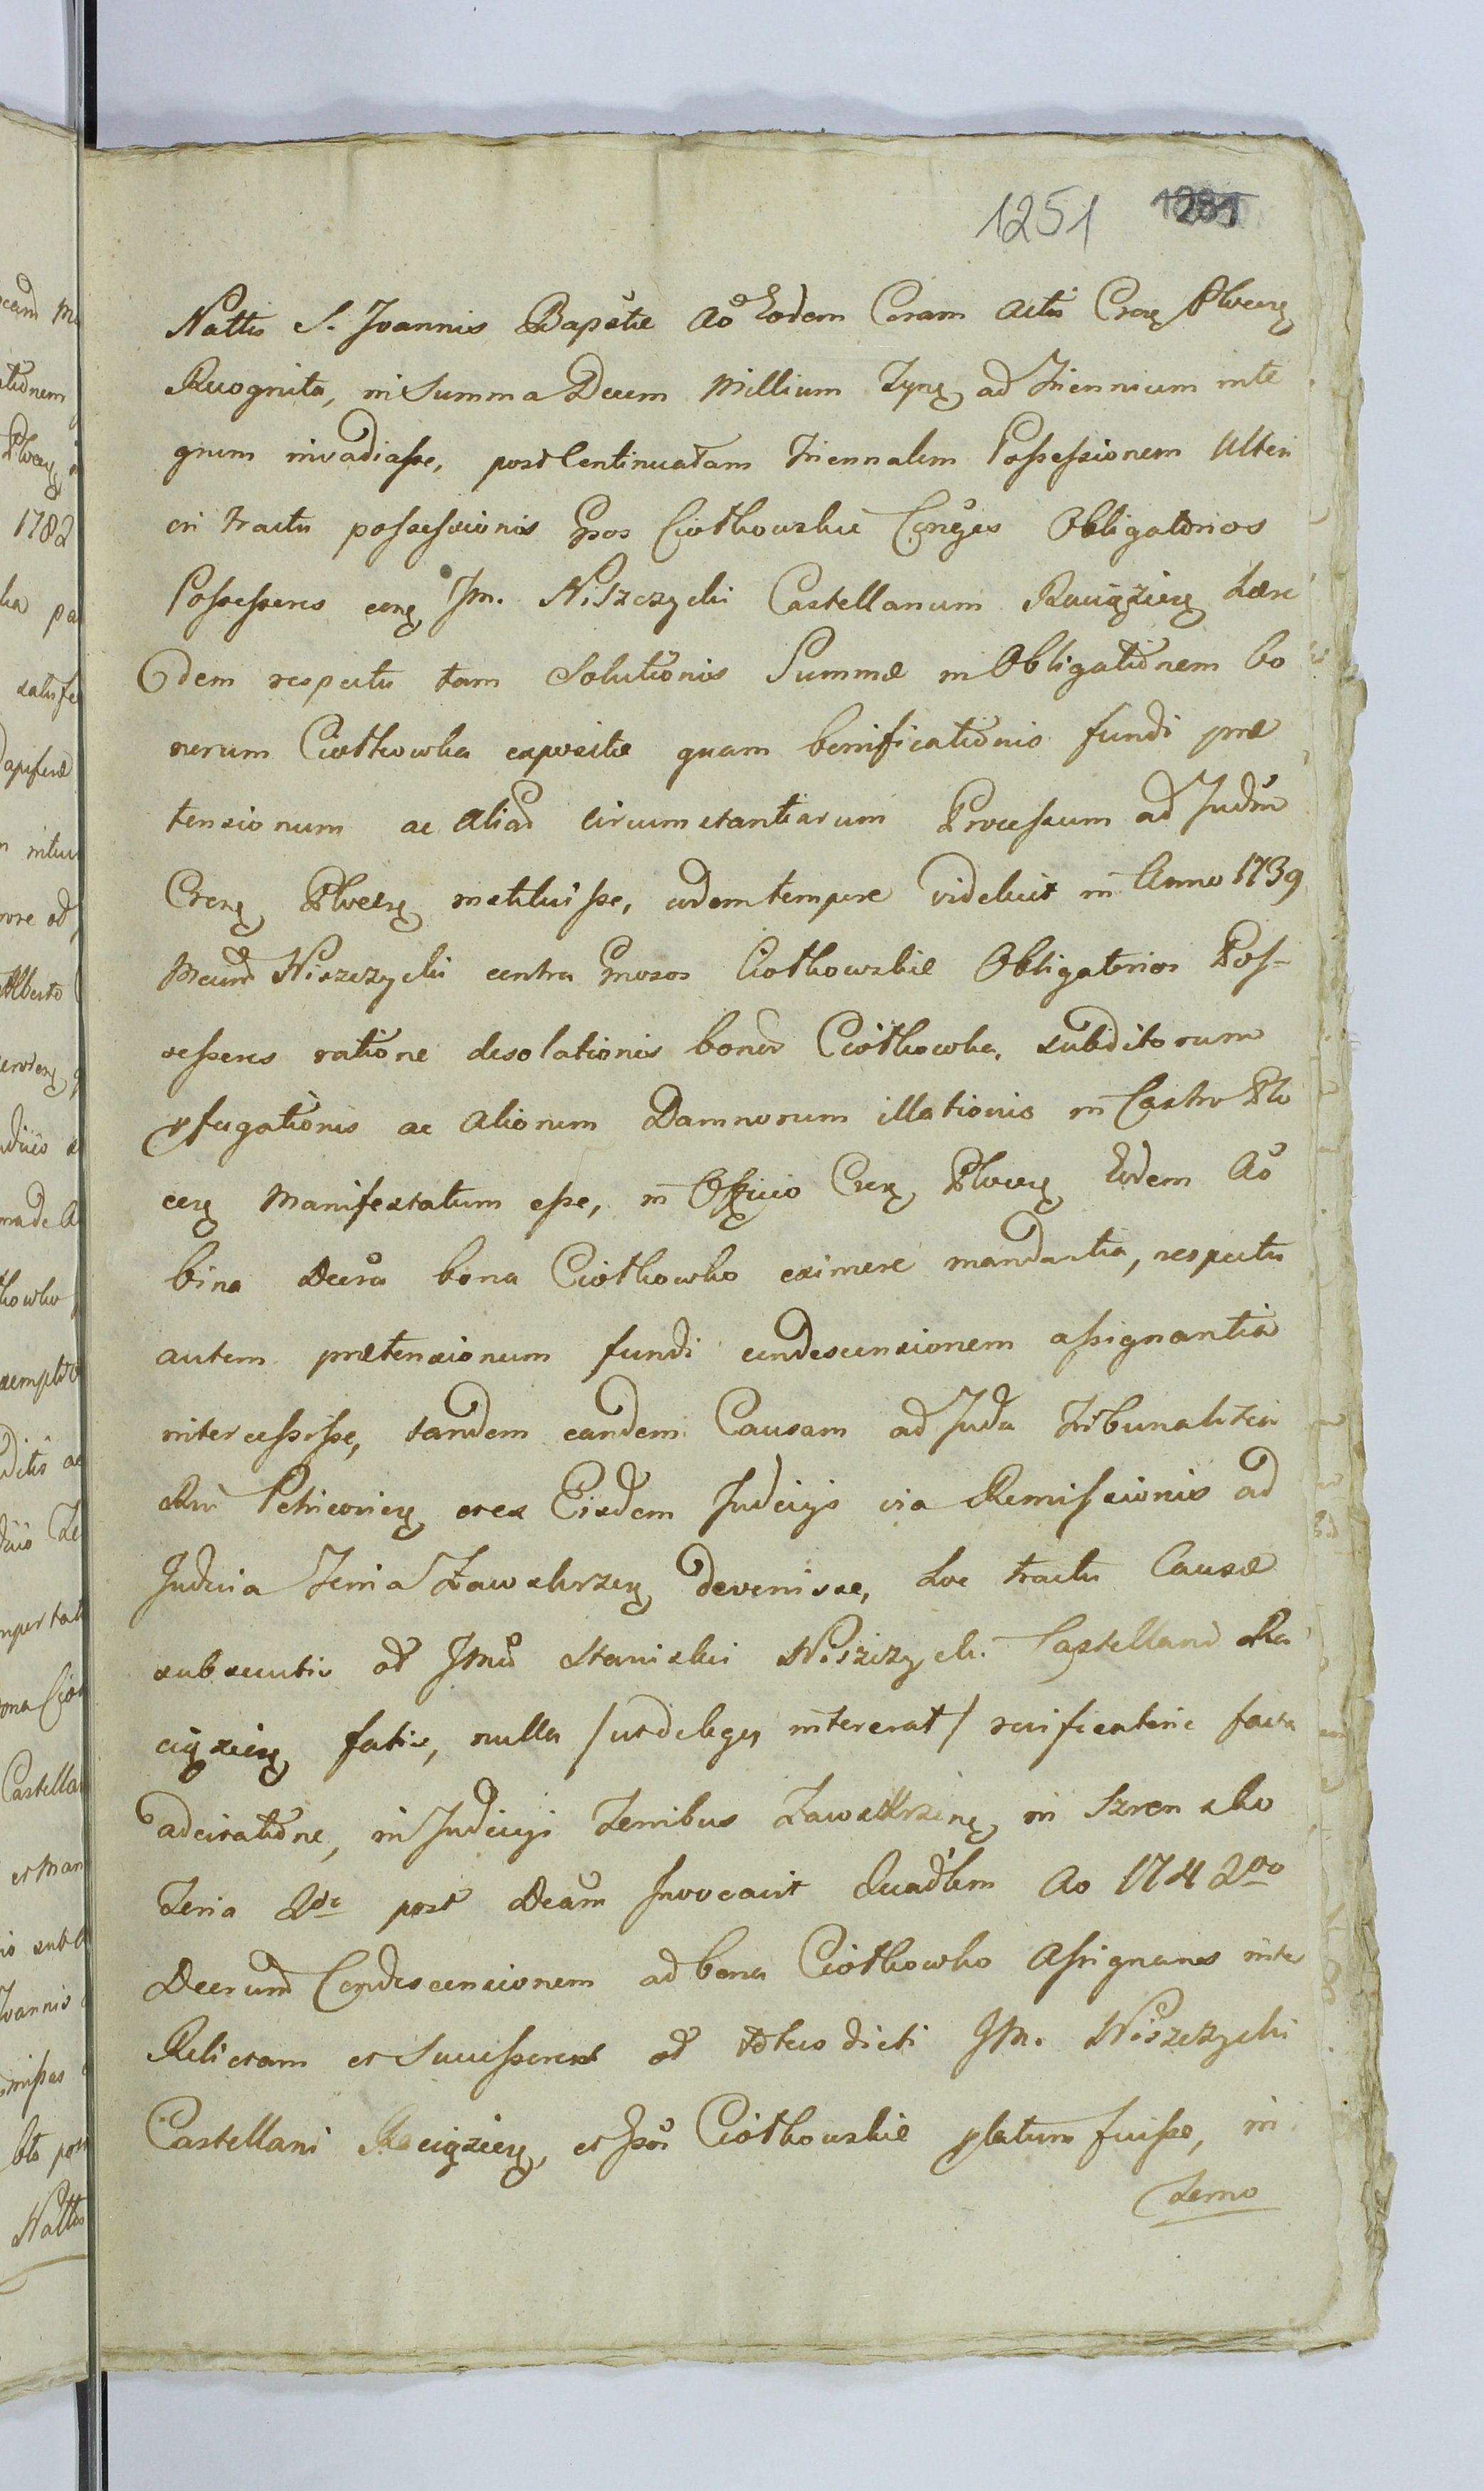 1251 1281
Nattis S. Joannis Baptæ Aō Eodem Coram Actis Cren Plocen
Recognita, in Summa Decem Millium Tynf ad Triennium inte
grum invadiasse, post Continuatam Triennalem Possessionem Ulteri
ori tractu possessionis Gsos Ciotkowskie Conges Obligatorios
Possessores cong Jm. Niszczycki Castellanum Raciązien hære
dem respectu tam Solutionis Summæ in Obligationem bo
norum Ciotkowka expositæ quam bonificationis fundi præ
tensionum ac aliar circumstantiarum Processum ad Judm
Cren Plocen instituisse, eodem tempore videlicet in Anno 1739
Mcum Niszczycki contra Gnosos Ciotkowskie Obligatorios Pos=
sessores ratione desolationis bonor Ciotkowka, subditorum
pfugationis ac Aliorum Damnorum illationis in Castro Plo
cen Manifestatum esse, in Officio Cren Plocen Eodem Aō
bina Decra bona Ciotkowko eximere mandantia, respectu
autem prætensionum fundi condescensionem assignantia
intercessisse, tandem eandem Causam ad Juda Tribunalitia
Rni Petricovien et ex Eisdem Judicijs via Remissionis ad
Judicia Terria Zawskrzen devenisse, hoc tractu Causæ
subsecutis od Jmu Stanislai Niszczycki Castellani Ra
ciązien fatis, nulla /ut de lege intererat/ reificatorie facta
adcitatione, in Judicijs Terribus Zawskrzen, in Szrensko
Feria 2da post Dcam Invocavit Quadlem Ao 1742do
Decrum Condescensionem ad bona Ciotkowko Assignans inter
Relictam et Successores od toties dicti Jm. Niszczycki
Castellani Raciązien, et Gsos Ciotkowskie platum fuisse, in
Termo